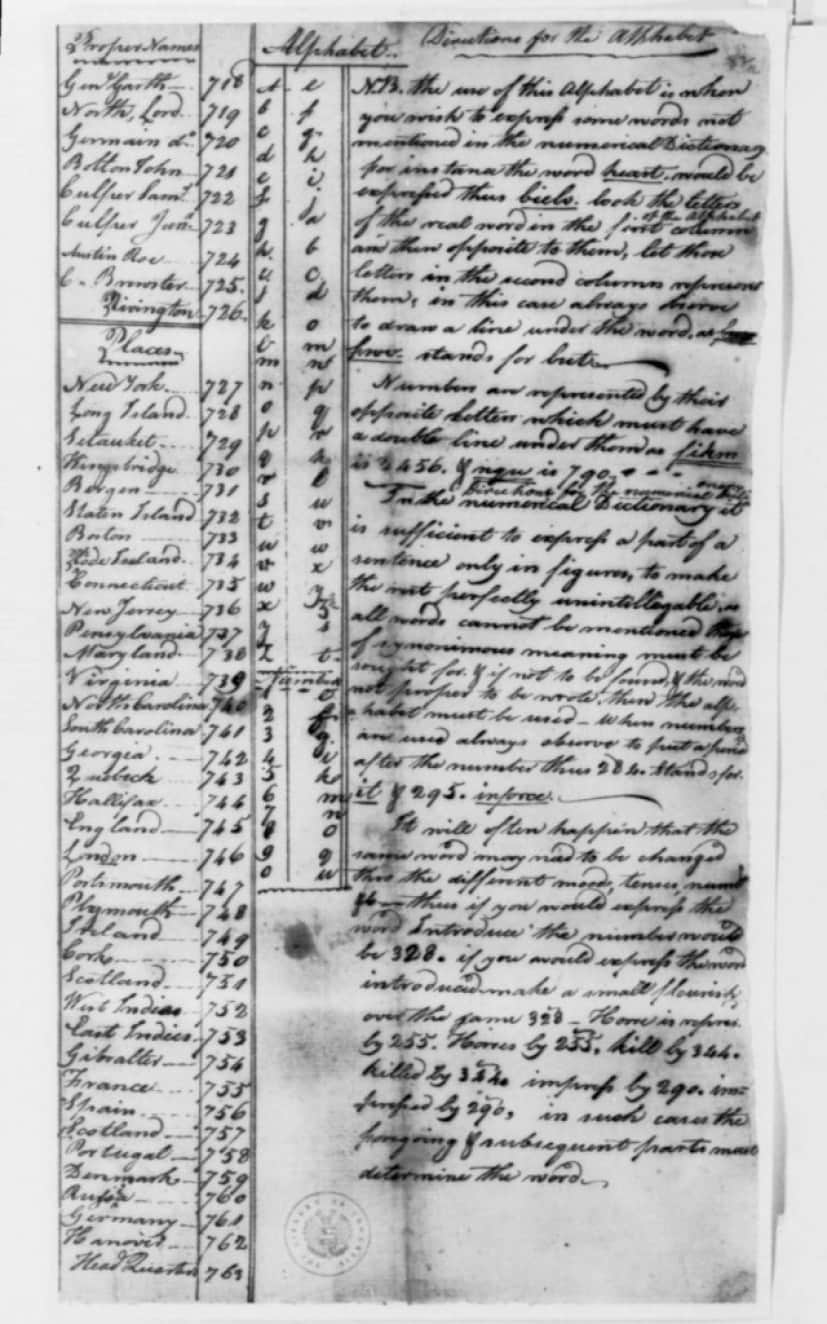 Proper Names
Genl Garth 718
North, Lord 719
Germain do. 720
Bolton John 721
Culper Saml. 722
Culper Junr. 723
Austin Roe 724
C. Brewster 725.
Rivington 726.
Places
New York. 727
Long Island 728
Setauket 729
Kingsbridge 730
Bergen 731
Staten Island 732
Boston 733
Rode Island. 734
Connecticut 735
New Jersey 736
Pensylvania 737
Maryland 738
Virginia 739
North Carolina 740
South Carolina 741
Georgia. 742
Quebeck 743
Hallifax 744
England 745
London 746
Portsmouth 747
Plymouth 748
Ireland 749
Cork 750
Scotland 751
West Indies 752
East Indies 753
Gibralter 754
France 755
Spain 756
Scotland 757
Portugal 758
Denmark 759
Rusia 760
Germany 761
Hanover 762
Head Quarters 763
Alphabet
a e
b f
c g
d h
e i
f j
g a
h b
i c
j d
k o
l m
m n
n p
o q
p r
q k
r l
s u
t v
u w
v x
w y
x z
y s
z t
Numbers
1 e
2 f
3 g
4 i
5 k
6 m
7 n
8 o
9 q
0 u
Directions for the Alphabet
N.B. the use of this Alphabet is when
you wish to express some words not
mentioned in the numerical Dictionary
for instance the word heart. would be
expressed thus biels. look the letters
of the real word in the first column of the Alphabet
and then opposite to them, let those
letters in the second column represent
them, in this case always observe
to draw a line under the word, as
fwv. stands for but
Numbers are represented by their
opposite letters which must have
a double line under them as fikm
is 2456. & nqu is 790.
Directions for the numerical Dictionary
In the numerical Dictionary it
is sufficient to express a part of a
sentence only in figures, to make
the rest perfectly unintellegable, as
all words cannot be mentioned those
of synonimous meaning must be
sought for. & if not to be found, & the word
not proper to be wrote, then the alp-
habet must be used - when numbers
are used always observe to put a period
after the number thus 284. stands for.
it & 295. inforce.
It will often happen that the
same word may need to be changed
thro the different moods, tenses, numbs
thus if you would express the
word Introduce the number would
be 328. if you would express the word
introduced make a small flourish
over the same 328 - Horse is repres.
by 255. Horses by 255. kill by 344.
killed by 344. impress by 290. im-
pressed by 290, in such cases the
forgoing & subsequent parts must
determine the word.